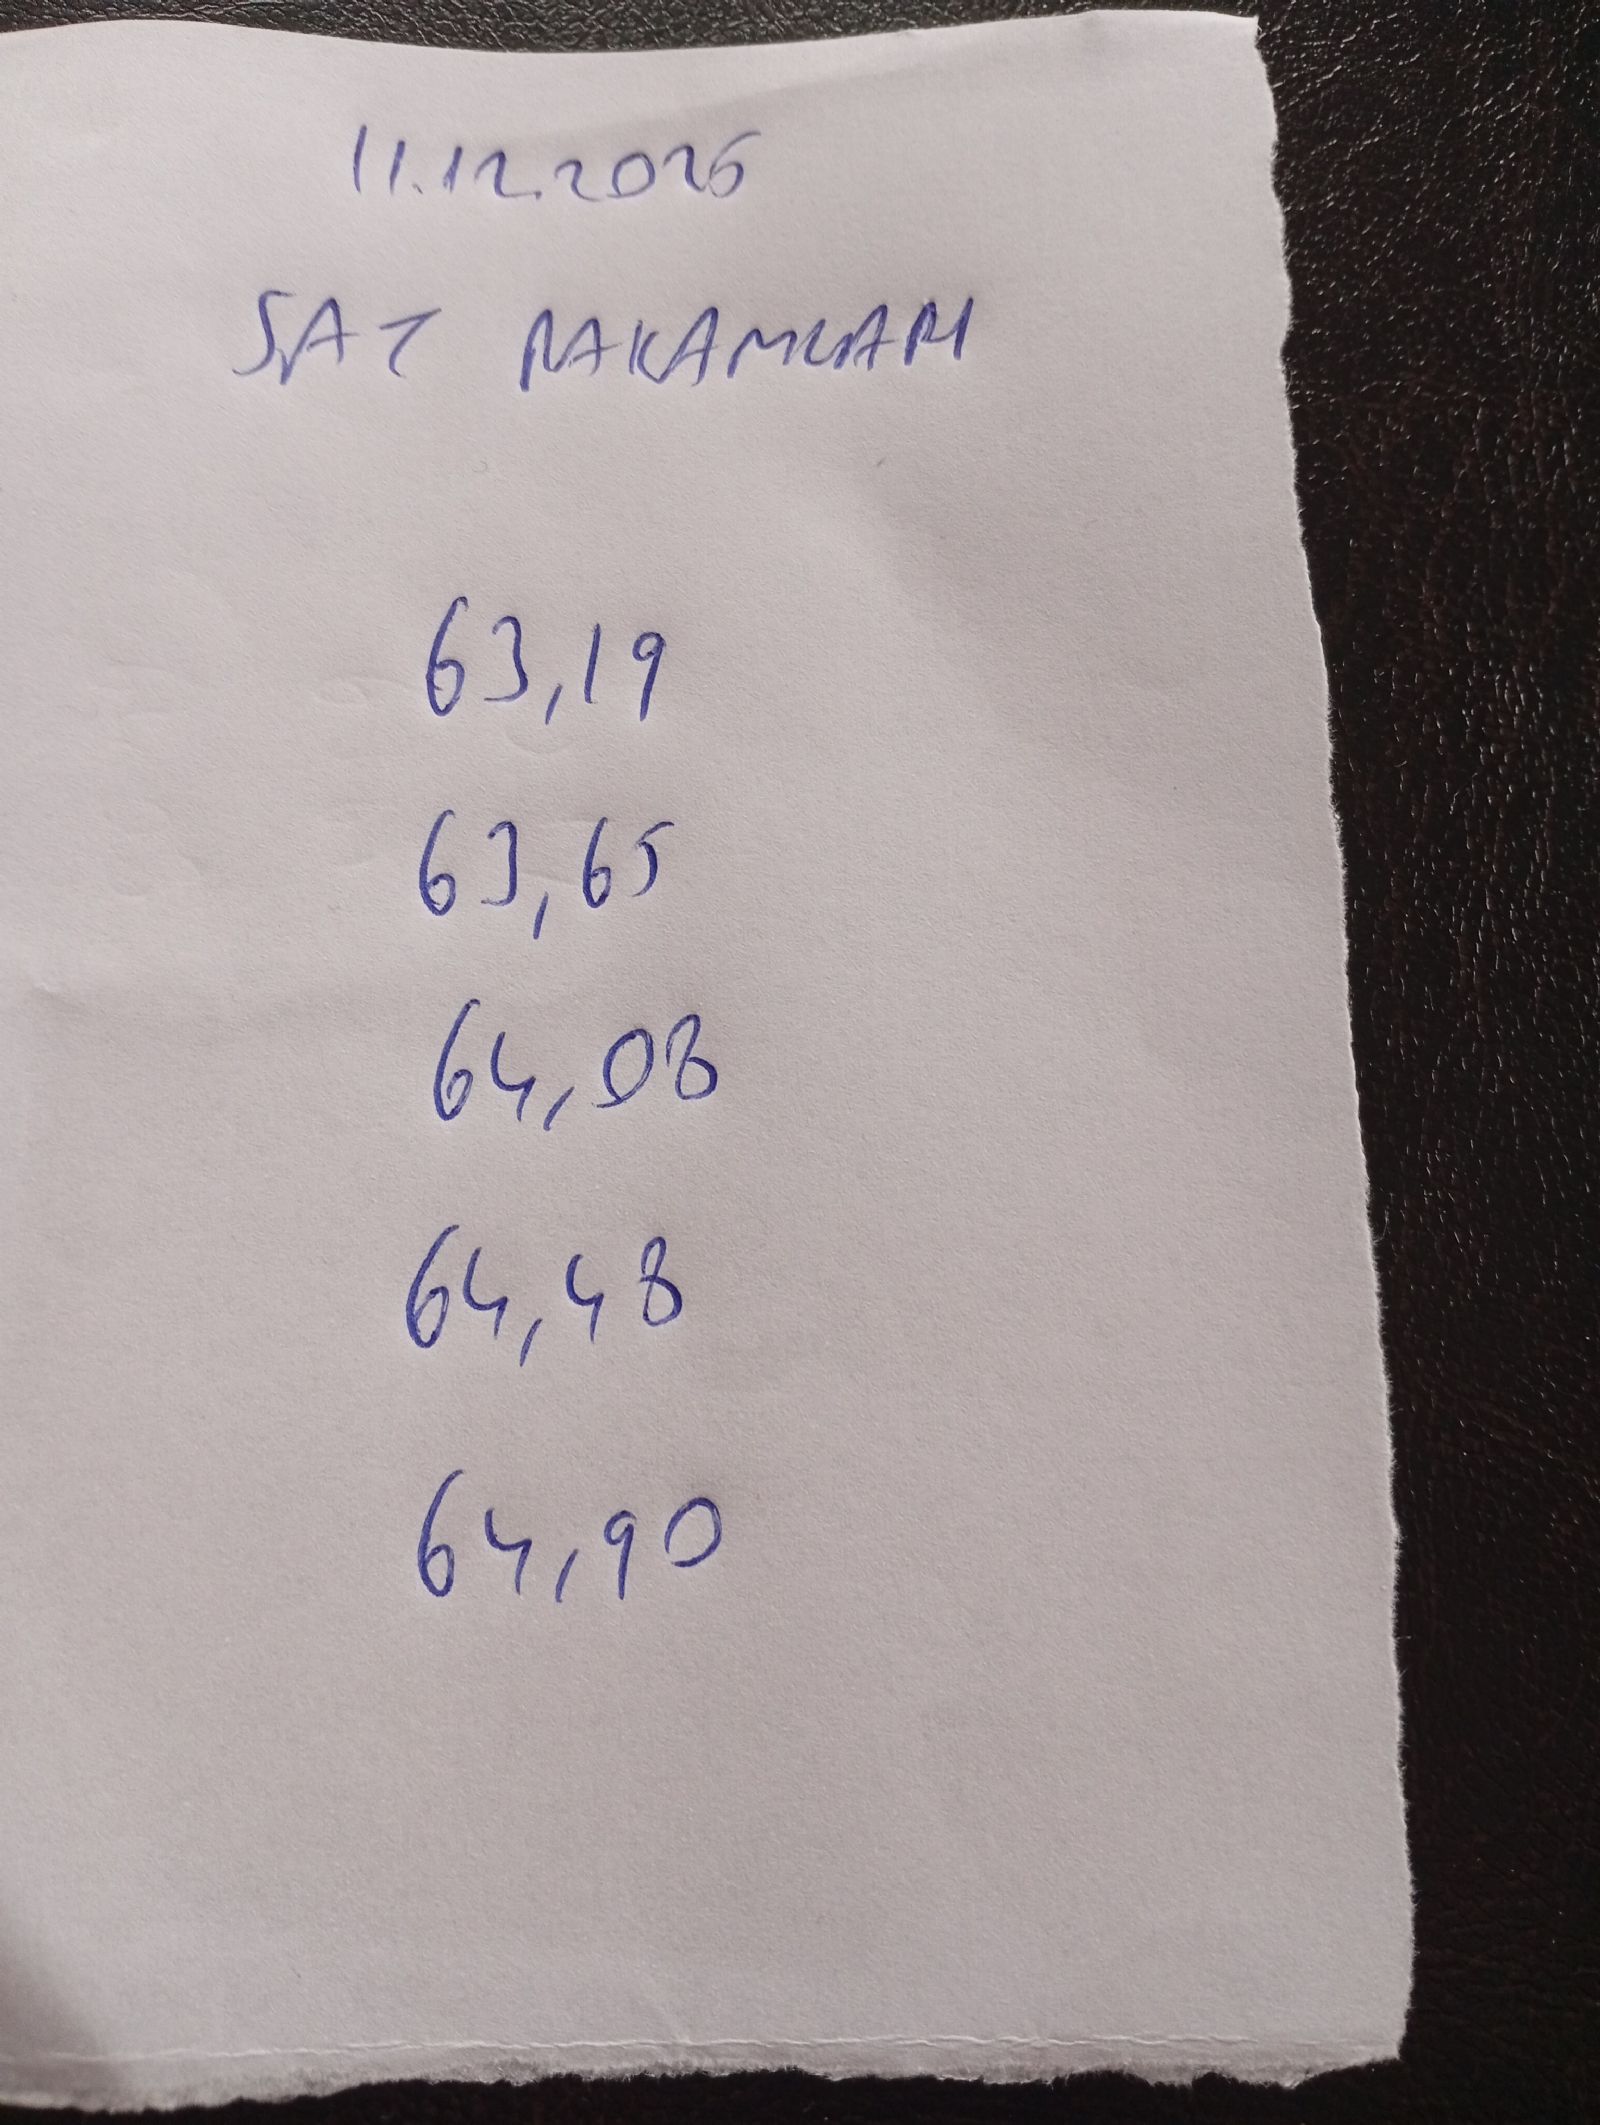 11.12.2025
SAT RAKAMLARI
63,19
63,65
64,08
64,48
64,90